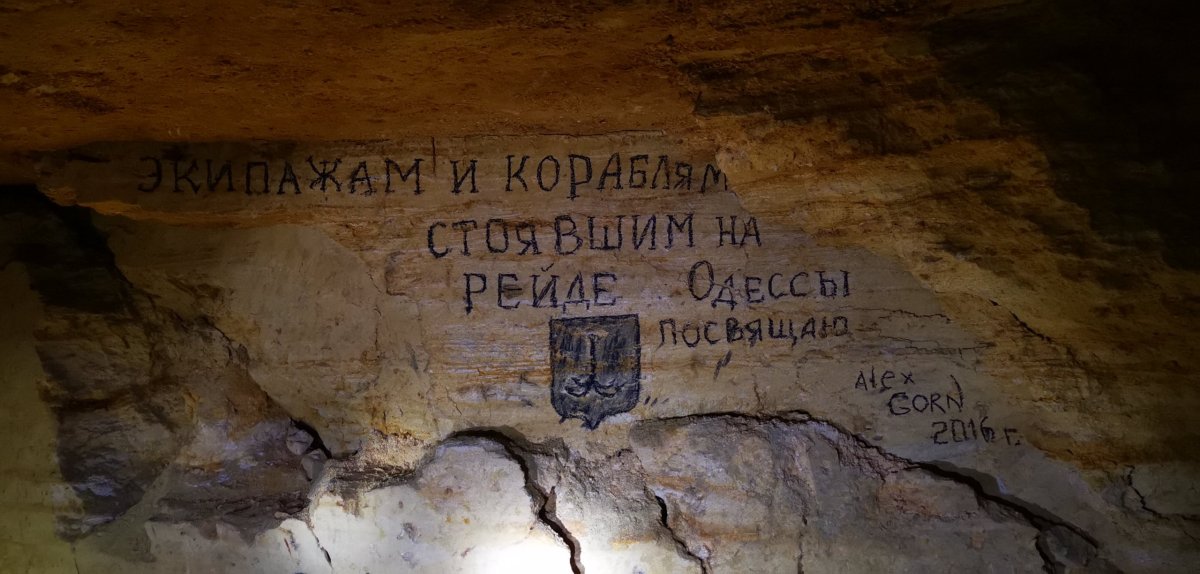 ЭКИПАЖАМ И КОРАБЛЯМ
СТОЯВШИМ НА
РЕЙДЕ ОДЕССЫ
ПОСВЯЩАЮ
Alex
GORN
2016 г.